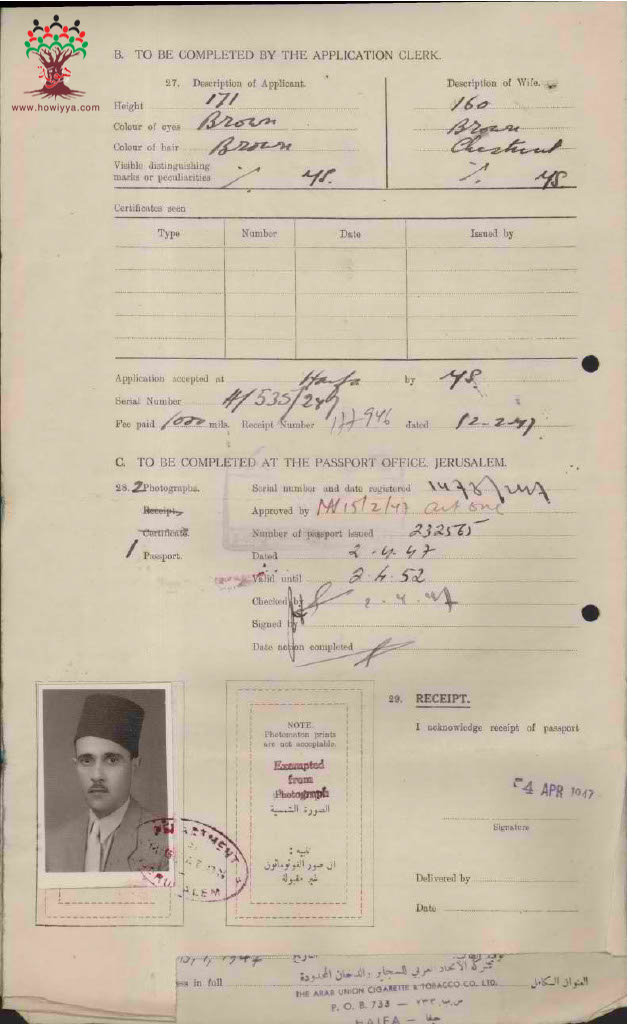 www.howiyya.com
B. TO BE COMPLETED BY THE APPLICATION CLERK.
27. Description of Applicant. Description of Wife.
Height 171 160
Colour of eyes Brown Brown
Colour of hair Brown Chestnut
Visible distinguishing
marks or peculiarities
Certificates seen
Type Number Date Issued by
Application accepted at Haifa by
Serial Number H/535/
Fee paid 1000 mils. Receipt Number 946 dated 12-2-47
C. TO BE COMPLETED AT THE PASSPORT OFFICE, JERUSALEM.
28. 2 Photographs. Serial number and date registered
Receipt. Approved by 15/2/47
Certificate. Number of passport issued 232565
1 Passport. Dated 2-4-47
Valid until 2.4.52
Checked by 2-4-47
Signed by
Date action completed
29. RECEIPT.
I acknowledge receipt of passport
NOTE.
Photomaton prints
are not acceptable.
Exempted
from
Photograph
الصورة الشمسية
تنبيه :
ان صور الفوتوماتون
غير مقبولة
4 APR 1947
Signature
Delivered by
Date
DEPARTMENT
JERUSALEM
ess in full
العنوان الكامل
THE ARAB UNION CIGARETTE & TOBACCO CO. LTD.
P. O. B. 733 — ص.ب. ٧٣٣
HAIFA — حيفا